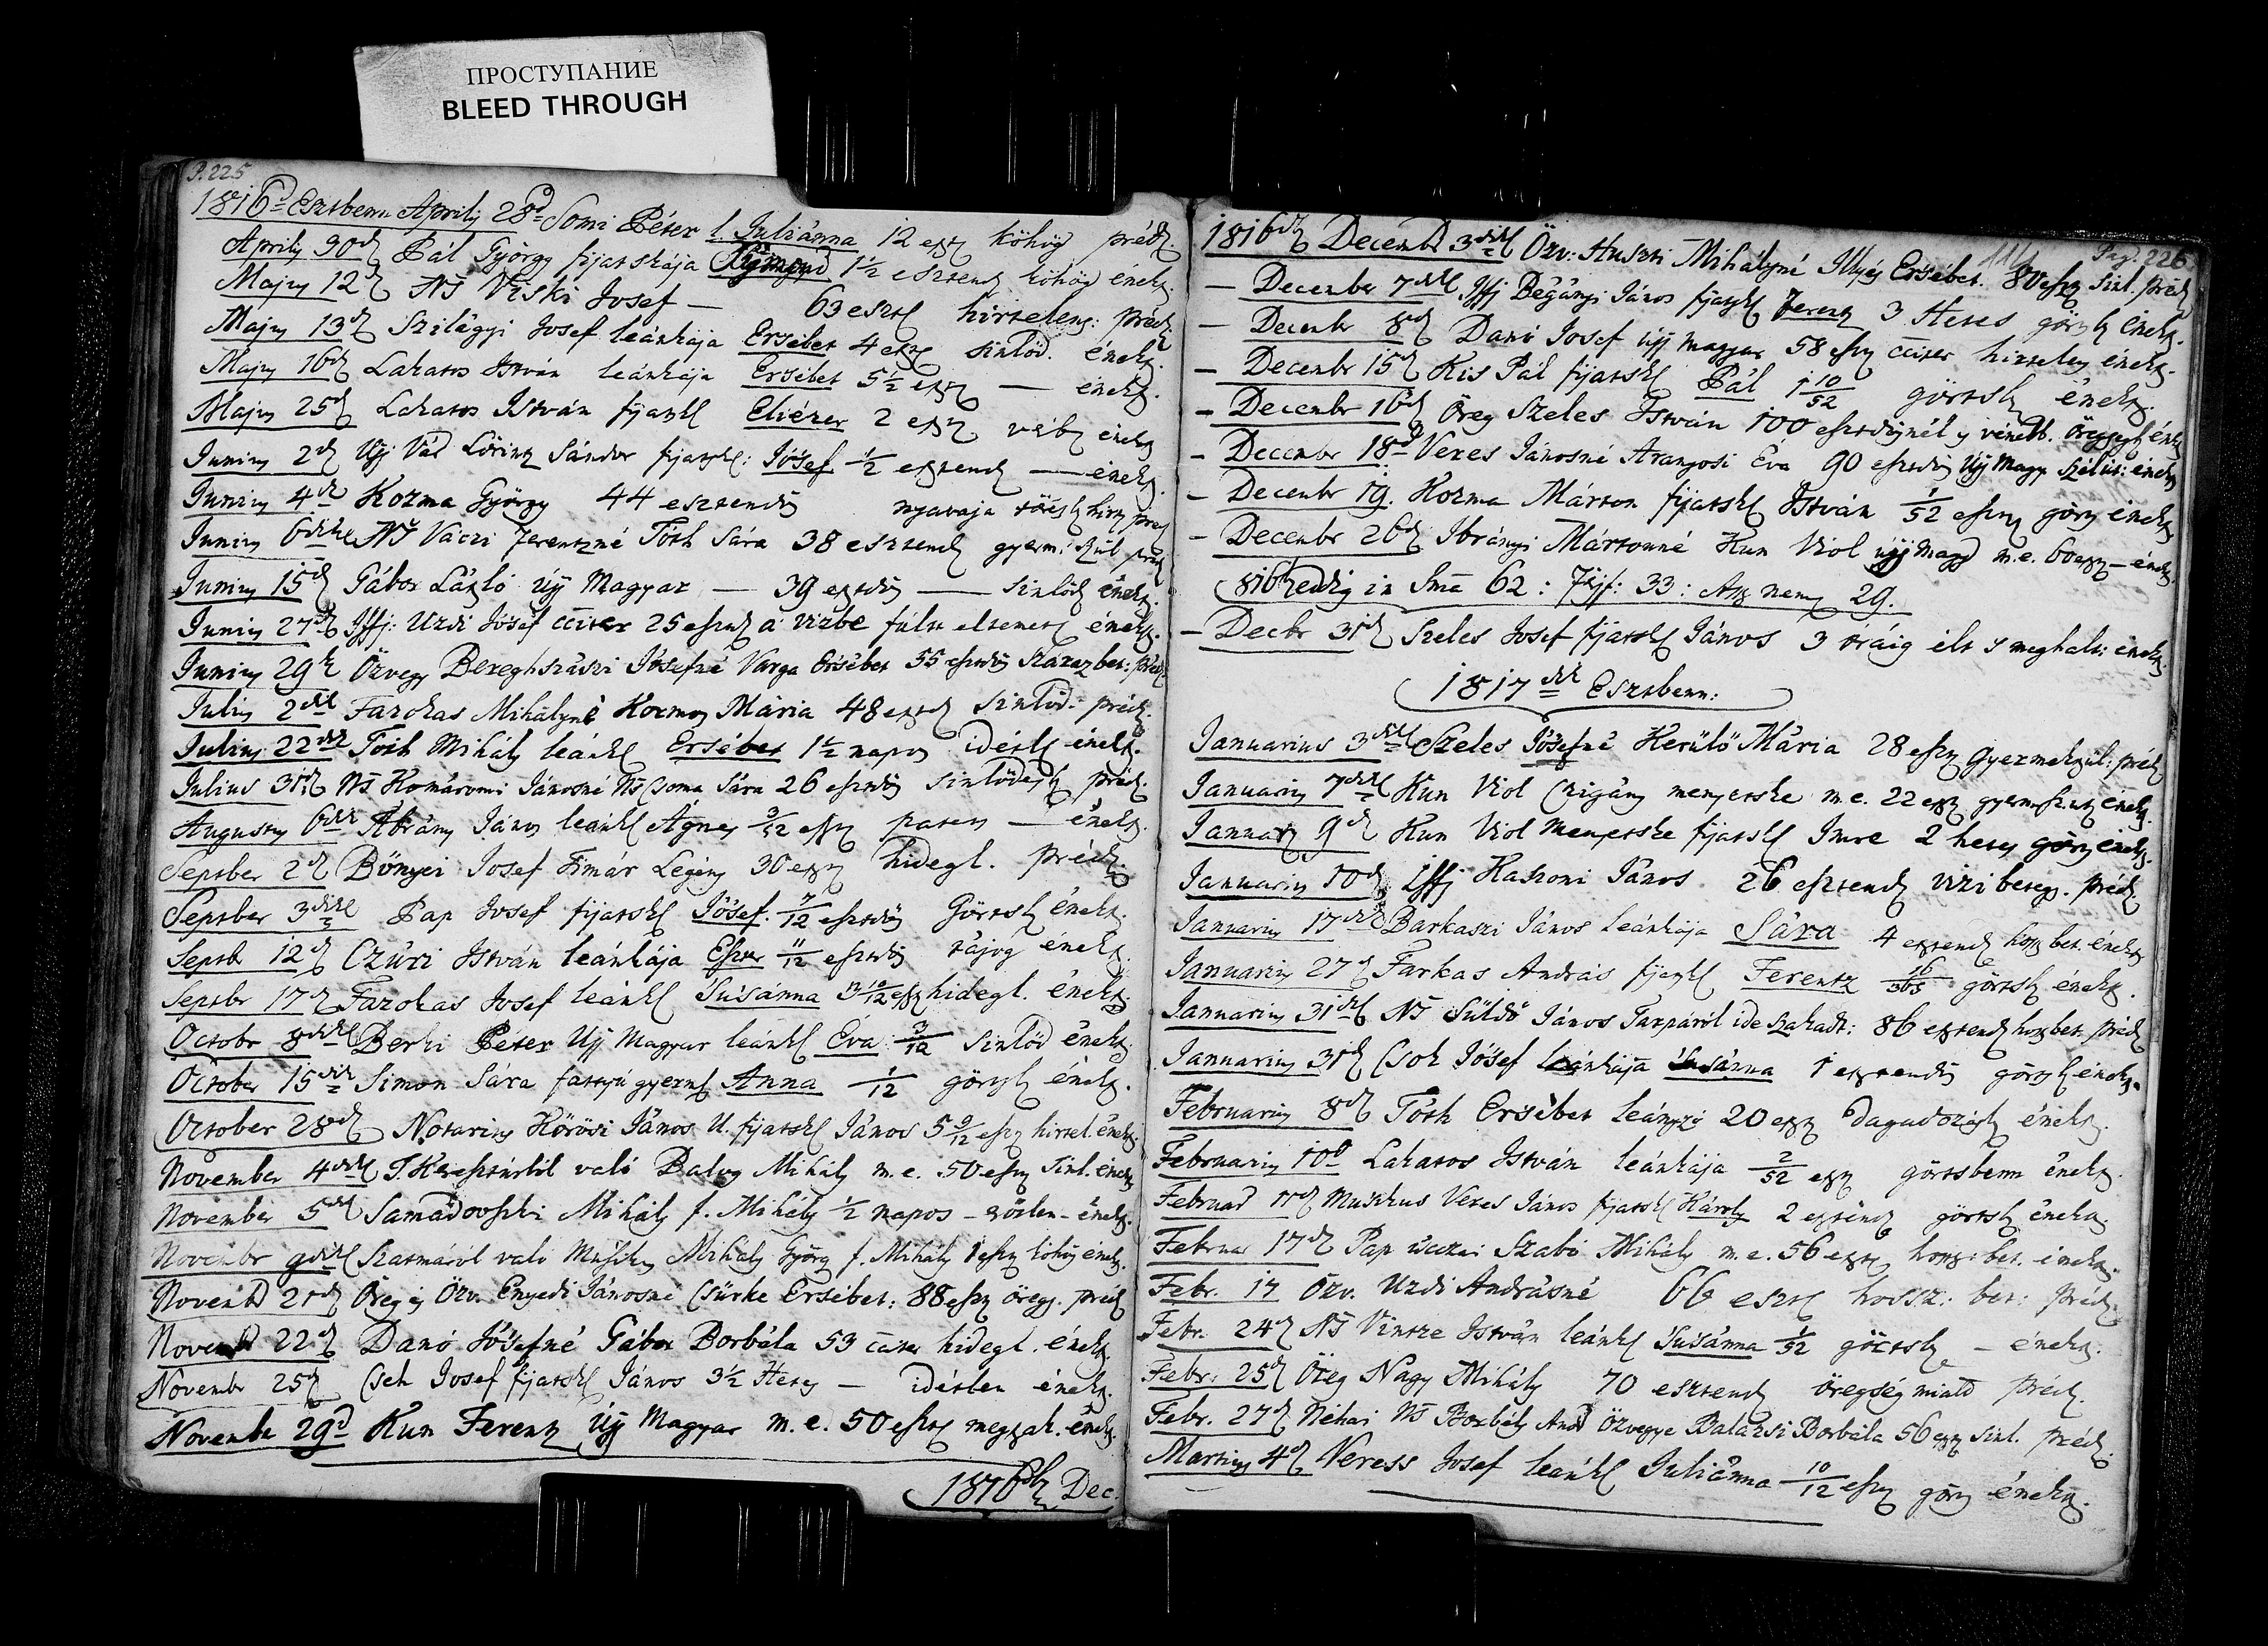 ПРОСТУПАНИЕ
BLEED THROUGH
P. 225
1816d. Esztbenn Aprily 28d. Somi Péter l. Juliánna 12 esz köhög préd.
Aprily 30d Pál György fijatskája Sigmond 1 1/2 esztend köhög énekz.
Majus 12d Ns Viski Josef — 63 eszt hirtelen: préd.
Majus 13d Szilágyi Josef leánkája Ersébet 4 esz sinlöd. énekz.
Majus 16d Lakatos István leánkája Ersébet 5 1/2 esz — énekz.
Majus 25d Lakatos István fijatsk Eliézer 2 esz énekz
Junius 2d Uj Vád Lörintz Sándor fijatsk: Jósef 1/2 esztend — énekz.
Junius 4d Kozma György 44 esztendös nyavaja préd
Junius 6dik Ns Váczi Ferentzné Tóth Sára 38 esztend gyerm: szül préd
Junius 15d Gábor László Uj Magyar — 39 esztdös — sinlöd énekz.
Junius 27d Iffj: Uzdi Jósef 25 esztend a vizbe fúlt eltemet énekz.
Junius 29d Özvegy Bereghszászi Jósefné Varga Ersébet 55 esztdös száraz bet: préd.
Julius 2dik Farokas Mihályné Kozma Mária 48 eszt sinlöd. préd.
Julius 22dik Tóth Mihály leánk Ersébet 1 1/2 napos idétl énekz.
Julius 31d Ns Komáromi Jánosné Ns Csoma Sára 26 esztdös sinlödésb préd.
Augustus 6dik Ábrány János leánk Ágnes 3/52 esz — énekz.
Septber 2d Bönyei Josef Timár Legény 30 esz hidegl. préd.
Septber 3dik Pap Josef fijatsk Jósef. 7/12 esztdös Görtsb énekz.
Septb 12d Czúczi István leánkája Eszter 11/12 esztdös énekz.
Septbr 17d Farokas Josef leánk Susánna esz hidegl. énekz.
Octobr 8dik Berki Péter Uj Magyar leánk Éva 3/12 sinlöd énekz.
October 15dik Simon Sára fattyú gyerm Anna 1/12 görtsb énekz.
October 28d Notarius Körösi János U. fijatsk János 5 9/12 esz hirtel. énekz.
November 4dik T. Keresztúrból való Balog Mihály m.e. 50 esz sinl. énekz
November 5dik Samadovszki Mihály f. Mihály 1/2 napos — énekz.
Novembr 9dik Szatmárol valo Mihály Györg f. Mihály 1 esz köhög énekz.
Novembd 21d Öreg Özv. Enyedi Jánosné Csürke Ersébet: 88 esz öregs. préd
Novembd 22d Danó Jósefné Gábor Borbála 53 hidegl. énekz.
Novembr 25d Cseh Josef fijatsk János 3 1/2 Hetes — idétlen énekz.
Novembe 29d Kun Ferentz Uj Magyar m.e. 50 eszt megszak. énekz.
1816b Dec.
Pag. 226.
1816d Decembd 3dik Özv: Huszti Mihályné Illyés Ersébet. 80 esz sinl. préd
— December 7dik Iffj Bégányi János fijatsk Ferentz 3 Hetes görtsb énekz.
— Decembr 8d Danó Josef új magyar 58 esz hirtelen énekz.
— Decembr 15d Kis Pál fijatsk Pál 1 10/52 görtsb énekz.
— Decembr 16d Öreg Szeles István 100 esztdösnél is vénebb. Öregsgb énekz
— Decembr 18d Veres Jánosné Aranyosi Éva 90 esztdös Uj Magy énekz
— Decembr 19. Kozma Márton fijatsk István 1/52 esz görtsb énekz
— Decembr 26d Ibrányi Mártonné Kun Viol új magy m.e. 60 esz — énekz.
816 edig in Sma 62: Férjf: 33: Assz nemz 29.
— Decbr 31d Szeles Josef fijatsk János 3 óráig élt s meghalt: énekz
1817dik Esztbenn:
Januarius 3dik Szeles Jósefné Kerülö Mária 28 esz Gyermekszül: préd
Januarius 7dik Kun Viol Czigány menyetske m.e. 22 esz gyermszül énekz.
Januar 9d Kun Viol Menyetske fijatsk Imre 2 hetes görtsb énekz.
Januarius 10d Iffj Haszoni János 26 esztend vizi beteg. préd.
Januarius 17dik Barkaszi János leánkája Sára 4 esztend hosz bet. énekz
Januarius 27d Farkas András fijatsk Ferentz 16/365 görtsb énekz.
Januarius 31dik Ns Süldö János Tarpáról ide szakadt: 86 esztend hosz bet. préd
Januarius 31d Csok Jósef leánkája Susánna 1 esztendös görtsb énekz.
Februarius 8d Tóth Ersébet leányzó 20 esz dagadozásb énekz.
Februarius 10d Lakatos István leánkája 2/52 esz görtsbenn énekz.
Februar 11d Musikus Veres János fijatsk Károly 2 esztend görtsb énekz
Februar 17d Pap úczai Szabó Mihály m.e. 56 eszt hossz: bet. énekz.
Febr. 17 Özv. Uzdi Andrásné 66 eszt hossz: bet: préd.
Febr. 24d Ns Vintze István leánk Susánna 1/52 görtsb — énekz.
Febr: 25d Öreg Nagy Mihály 70 esztend öregség miatt préd.
Febr. 27d Néhai Ns Borbély And Özvegye Balázsi Borbála 56 esz sinl. préd.
Martius 4d Veress Josef leánk Juliánna 10/12 esz görtsb énekz.